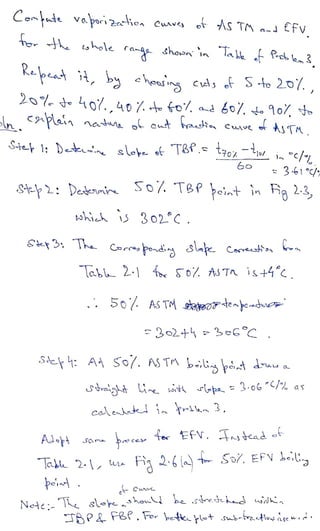 Compute vaporization curves of ASTM and EFV.
for the whole range shown in Table of Problem 3.
Repeat it, by choosing cuts of 5 to 20%,
20% to 40%, 40% to 60% and 60% to 90% to
oln. explain nature of cut fraction curve of ASTM.
Step 1: Determine slope of TBP = t70% - t10% / 60 in °C/%
= 3.61°C/%
Step 2: Determine 50% TBP point in Fig 2.3,
which is 302°C.
Step 3: The corresponding slope correction from
Table 2.1 for 50% ASTM is +4°C.
∴ 50% ASTM temperature
= 302+4 = 306°C.
Step 4: At 50% ASTM boiling point draw a
straight line with slope = 3.06°C/% as
calculated in problem 3.
Adopt same process for EFV. Instead of
Table 2.1, use Fig 2.6(a) for 50% EFV boiling
point.
of curve
Note:- The slope should be stretched within
IBP & FBP. For better plot